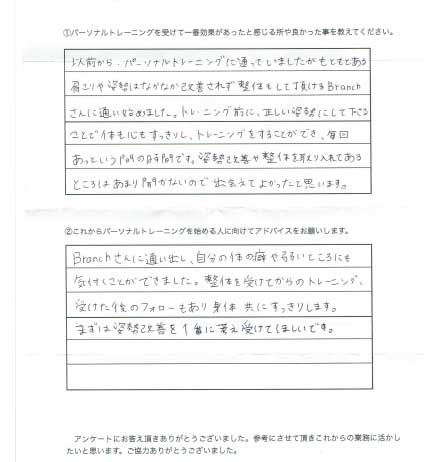 ①パーソナルトレーニングを受けて一番効果があったと感じる所や良かった事を教えてください。
以前から、パーソナルトレーニングに通っていましたがもともとある
肩こりや姿勢はなかなか改善されず整体もして頂けるBranch
さんに通い始めました。トレーニング前に、正しい姿勢にして下さる
ことで体も心もすっきりし、トレーニングをすることができ、毎回
あっという間の時間です。姿勢改善や整体を取り入れてある
ところはあまり聞かないので出会えてよかったと思います。
②これからパーソナルトレーニングを始める人に向けてアドバイスをお願いします。
Branchさんに通い出し、自分の体の癖や弱いところにも
気付くことができました。整体を受けてからのトレーニング、
受けた後のフォローもあり身体共にすっきりします。
まずは姿勢改善を1番に考え受けてほしいです。
アンケートにお答え頂きありがとうございました。参考にさせて頂きこれからの業務に活かし
たいと思います。ご協力ありがとうございました。